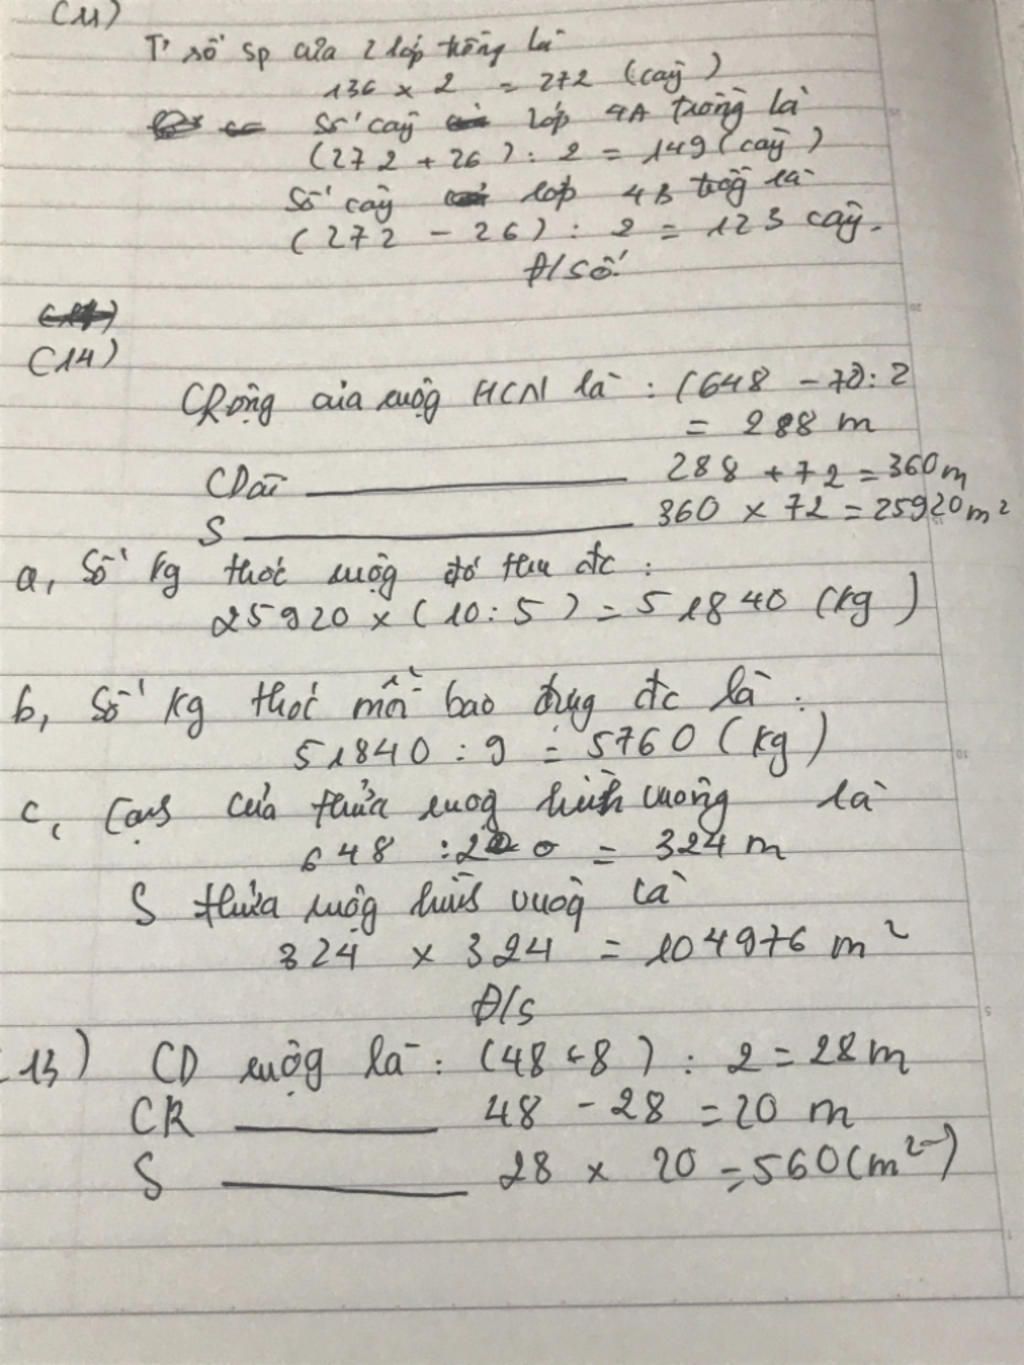 (11)
T² số sp của 2 lớp trồng là
136 x 2 = 272 (cây)
Số cây lớp 4A trồng là
(272 + 26) : 2 = 149 (cây)
Số cây lớp 4B trồg là
(272 - 26) : 2 = 123 cây.
Đ/số:
(14)
CRộng của ruộg HCN là : (648 - 72) : 2
= 288 m
CDài ——— 288 + 72 = 360m
S ——— 360 x 72 = 25920m²
a, Số kg thóc ruộg đó thu đc :
25920 x (10 : 5) = 51840 (kg)
b, Số kg thóc mỗi bao đựg đc là :
51840 : 9 = 5760 (kg)
c, Cạnh của thửa ruộg hình vuông là
648 : 2 = 324 m
S thửa ruộg hình vuôg là
324 x 324 = 104976 m²
Đ/s
13) CD ruộg là : (48 + 8) : 2 = 28m
CR ——— 48 - 28 = 20 m
S ——— 28 x 20 = 560 (m²)